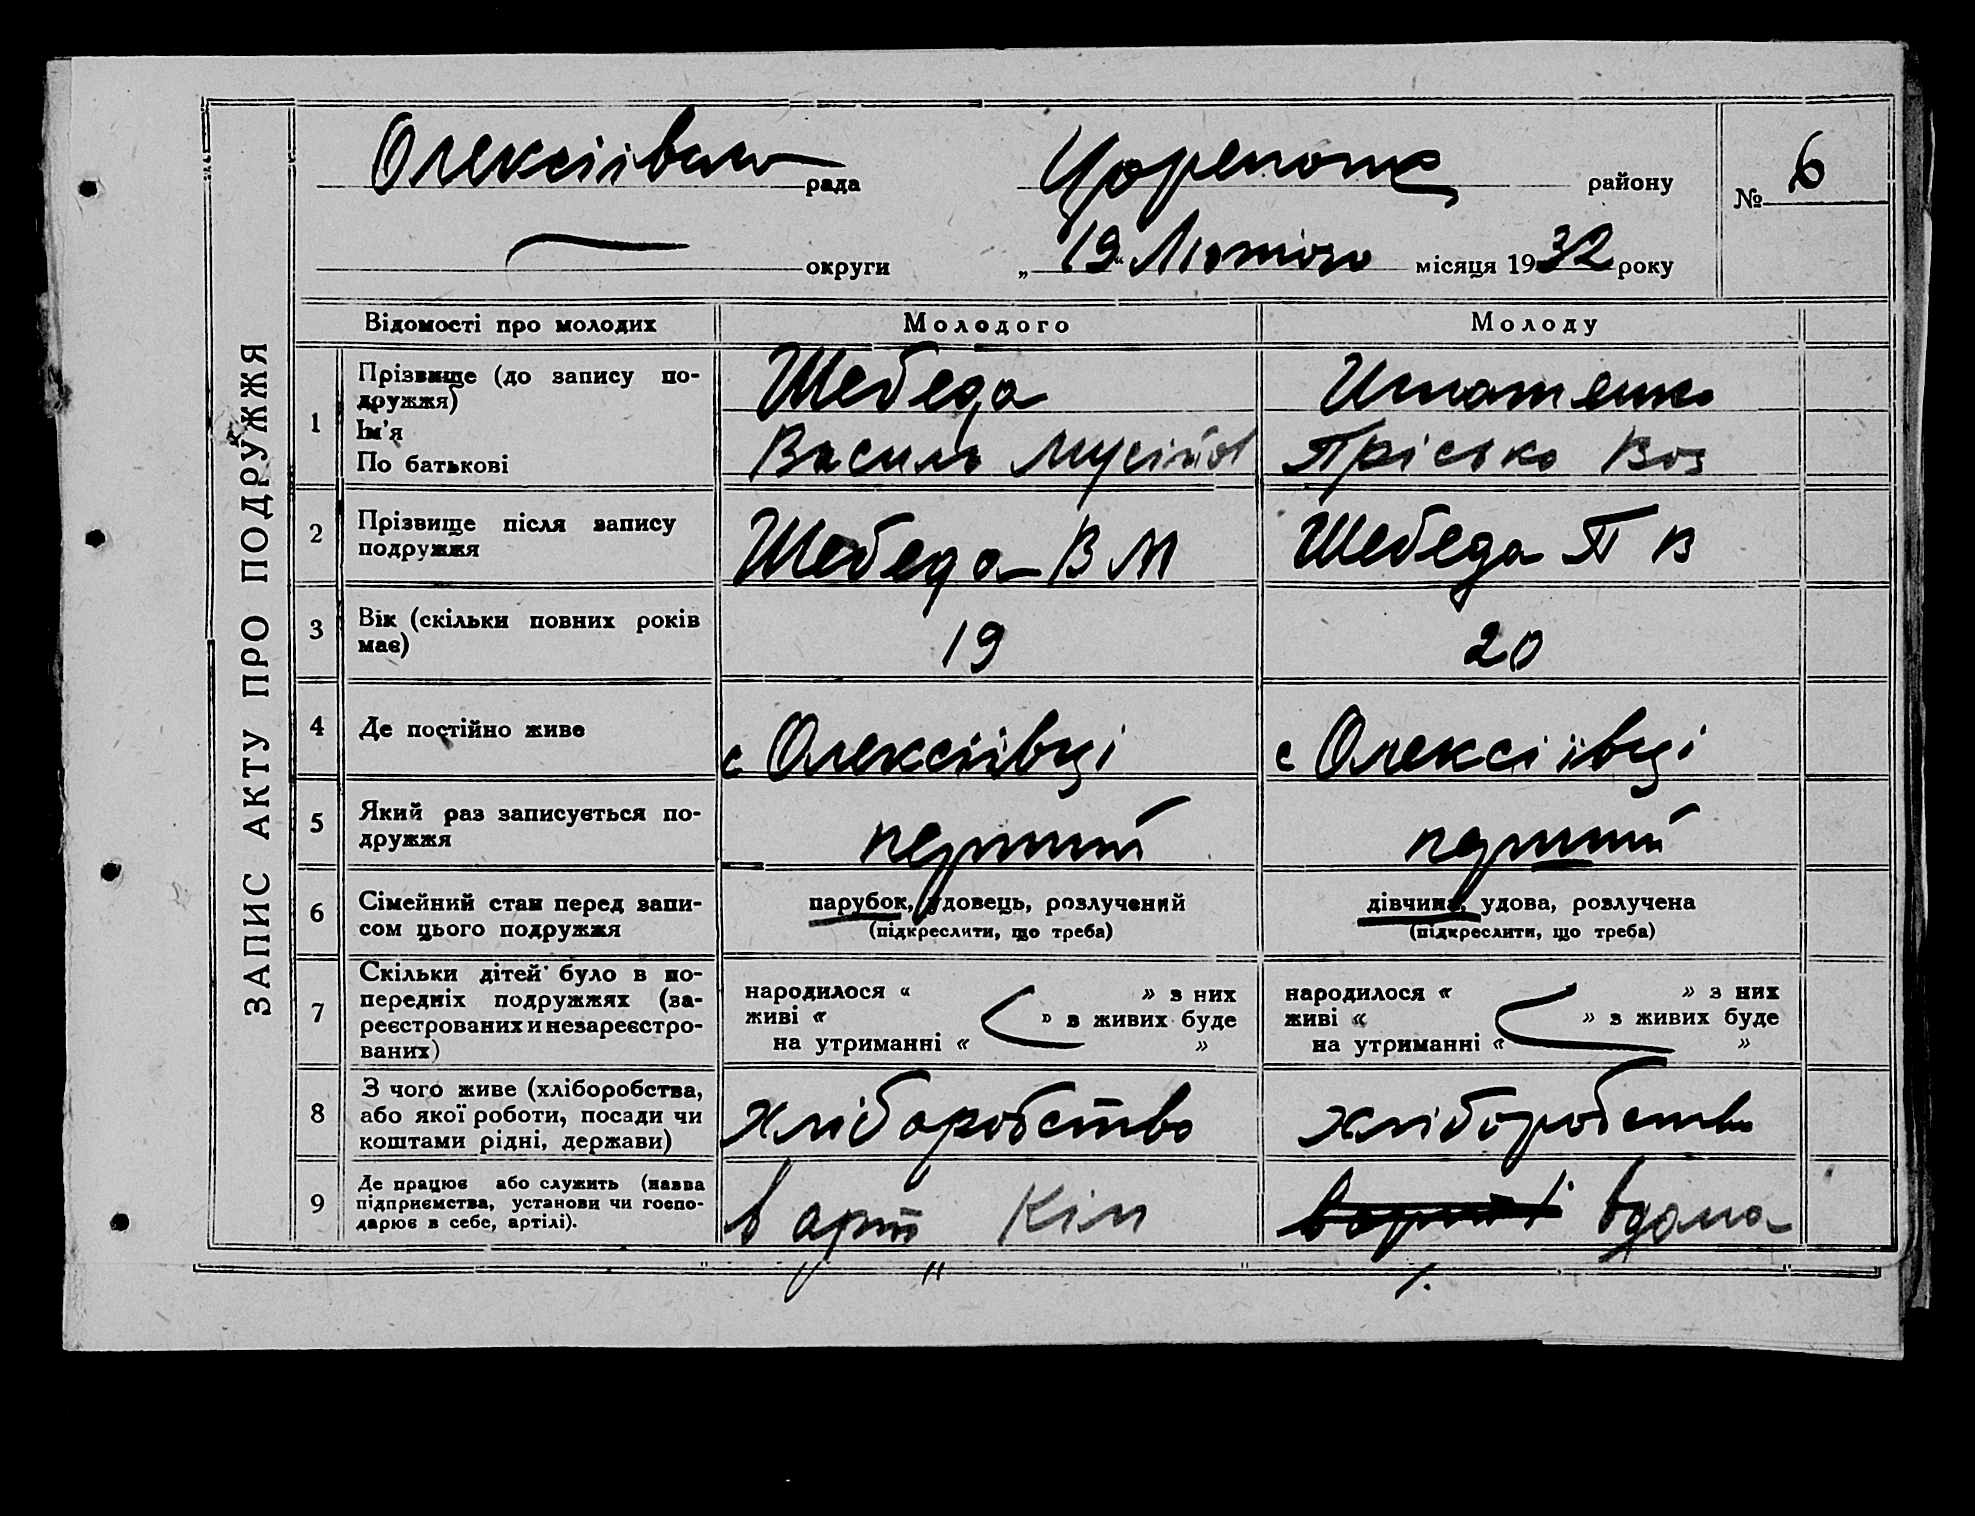 ЗАПИС АКТУ ПРО ПОДРУЖЖЯ
рада
району
№ 6
округи
„ 19 “ Лютого місяця 1932 року
Відомості про молодих
Молодого
Молоду
1
Прізвище (до запису по-
дружжя)
Ім'я
По батькові
Шебеда
Василь Мусійов
Игнатенко
Пріська
2
Прізвище після запису
подружжя
Шебеда В М
Шебеда П В
3
Вік (скільки повних років
має)
19
20
4
Де постійно живе
с Олексіївці
с Олексіївці
5
Який раз записується по-
дружжя
перший
перший
6
Сімейний стан перед запи-
сом цього подружжя
парубок, удовець, розлучений
(підкреслити, що треба)
дівчина, удова, розлучена
(підкреслити, що треба)
7
Скільки дітей було в по-
передніх подружжях (за-
реєстрованих и незареєстро-
ваних)
народилося « » з них
живі « » з живих буде
на утриманні « »
народилося « » з них
живі « » з живих буде
на утриманні « »
8
З чого живе (хліборобства,
або якої роботи, посади чи
коштами рідні, держави)
хліборобство
хліборобство
9
Де працює або служить (назва
підприємства, установи чи госпо-
дарює в себе, артілі).
в арт Кім
вдома